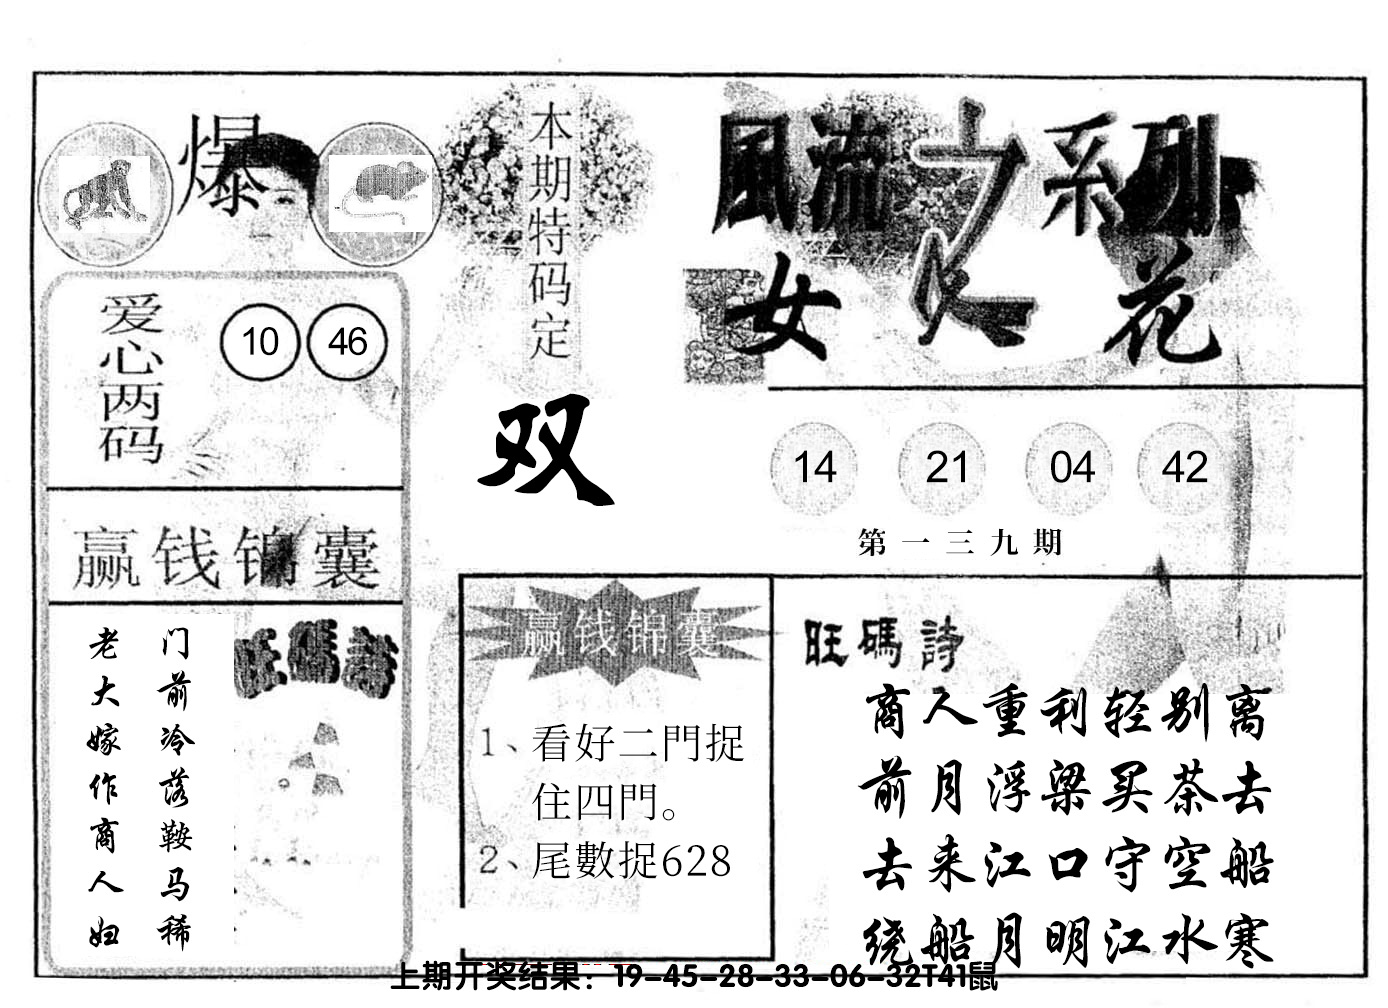 爆
本期特码定
双
爱心两码
10 46
赢钱锦囊
门前冷落鞍马稀
老大嫁作商人妇
旺碼詩
風流之系列
女人花
14 21 04 42
第一三九期
赢钱锦囊
1、看好二門捉
住四門。
2、尾數捉628
旺碼詩
商人重利轻别离
前月浮梁买茶去
去来江口守空船
绕船月明江水寒
上期开奖结果：19-45-28-33-06-32T41鼠